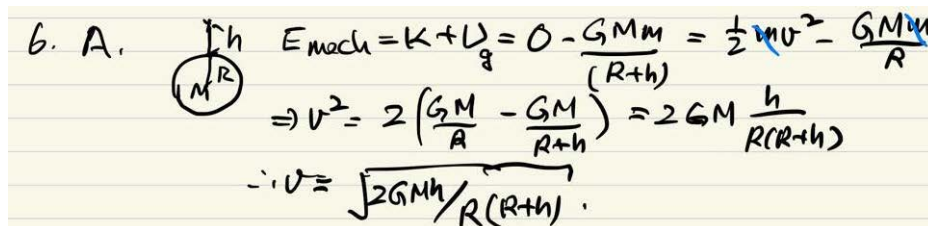 6. A. h E mech = K + Ug = 0 - GMm/(R+h) = 1/2 mv² - GMm/R
M R
⇒ v² = 2 (GM/R - GM/R+h) = 2GM h/R(R+h)
∴ v = √2GMh/R(R+h) .